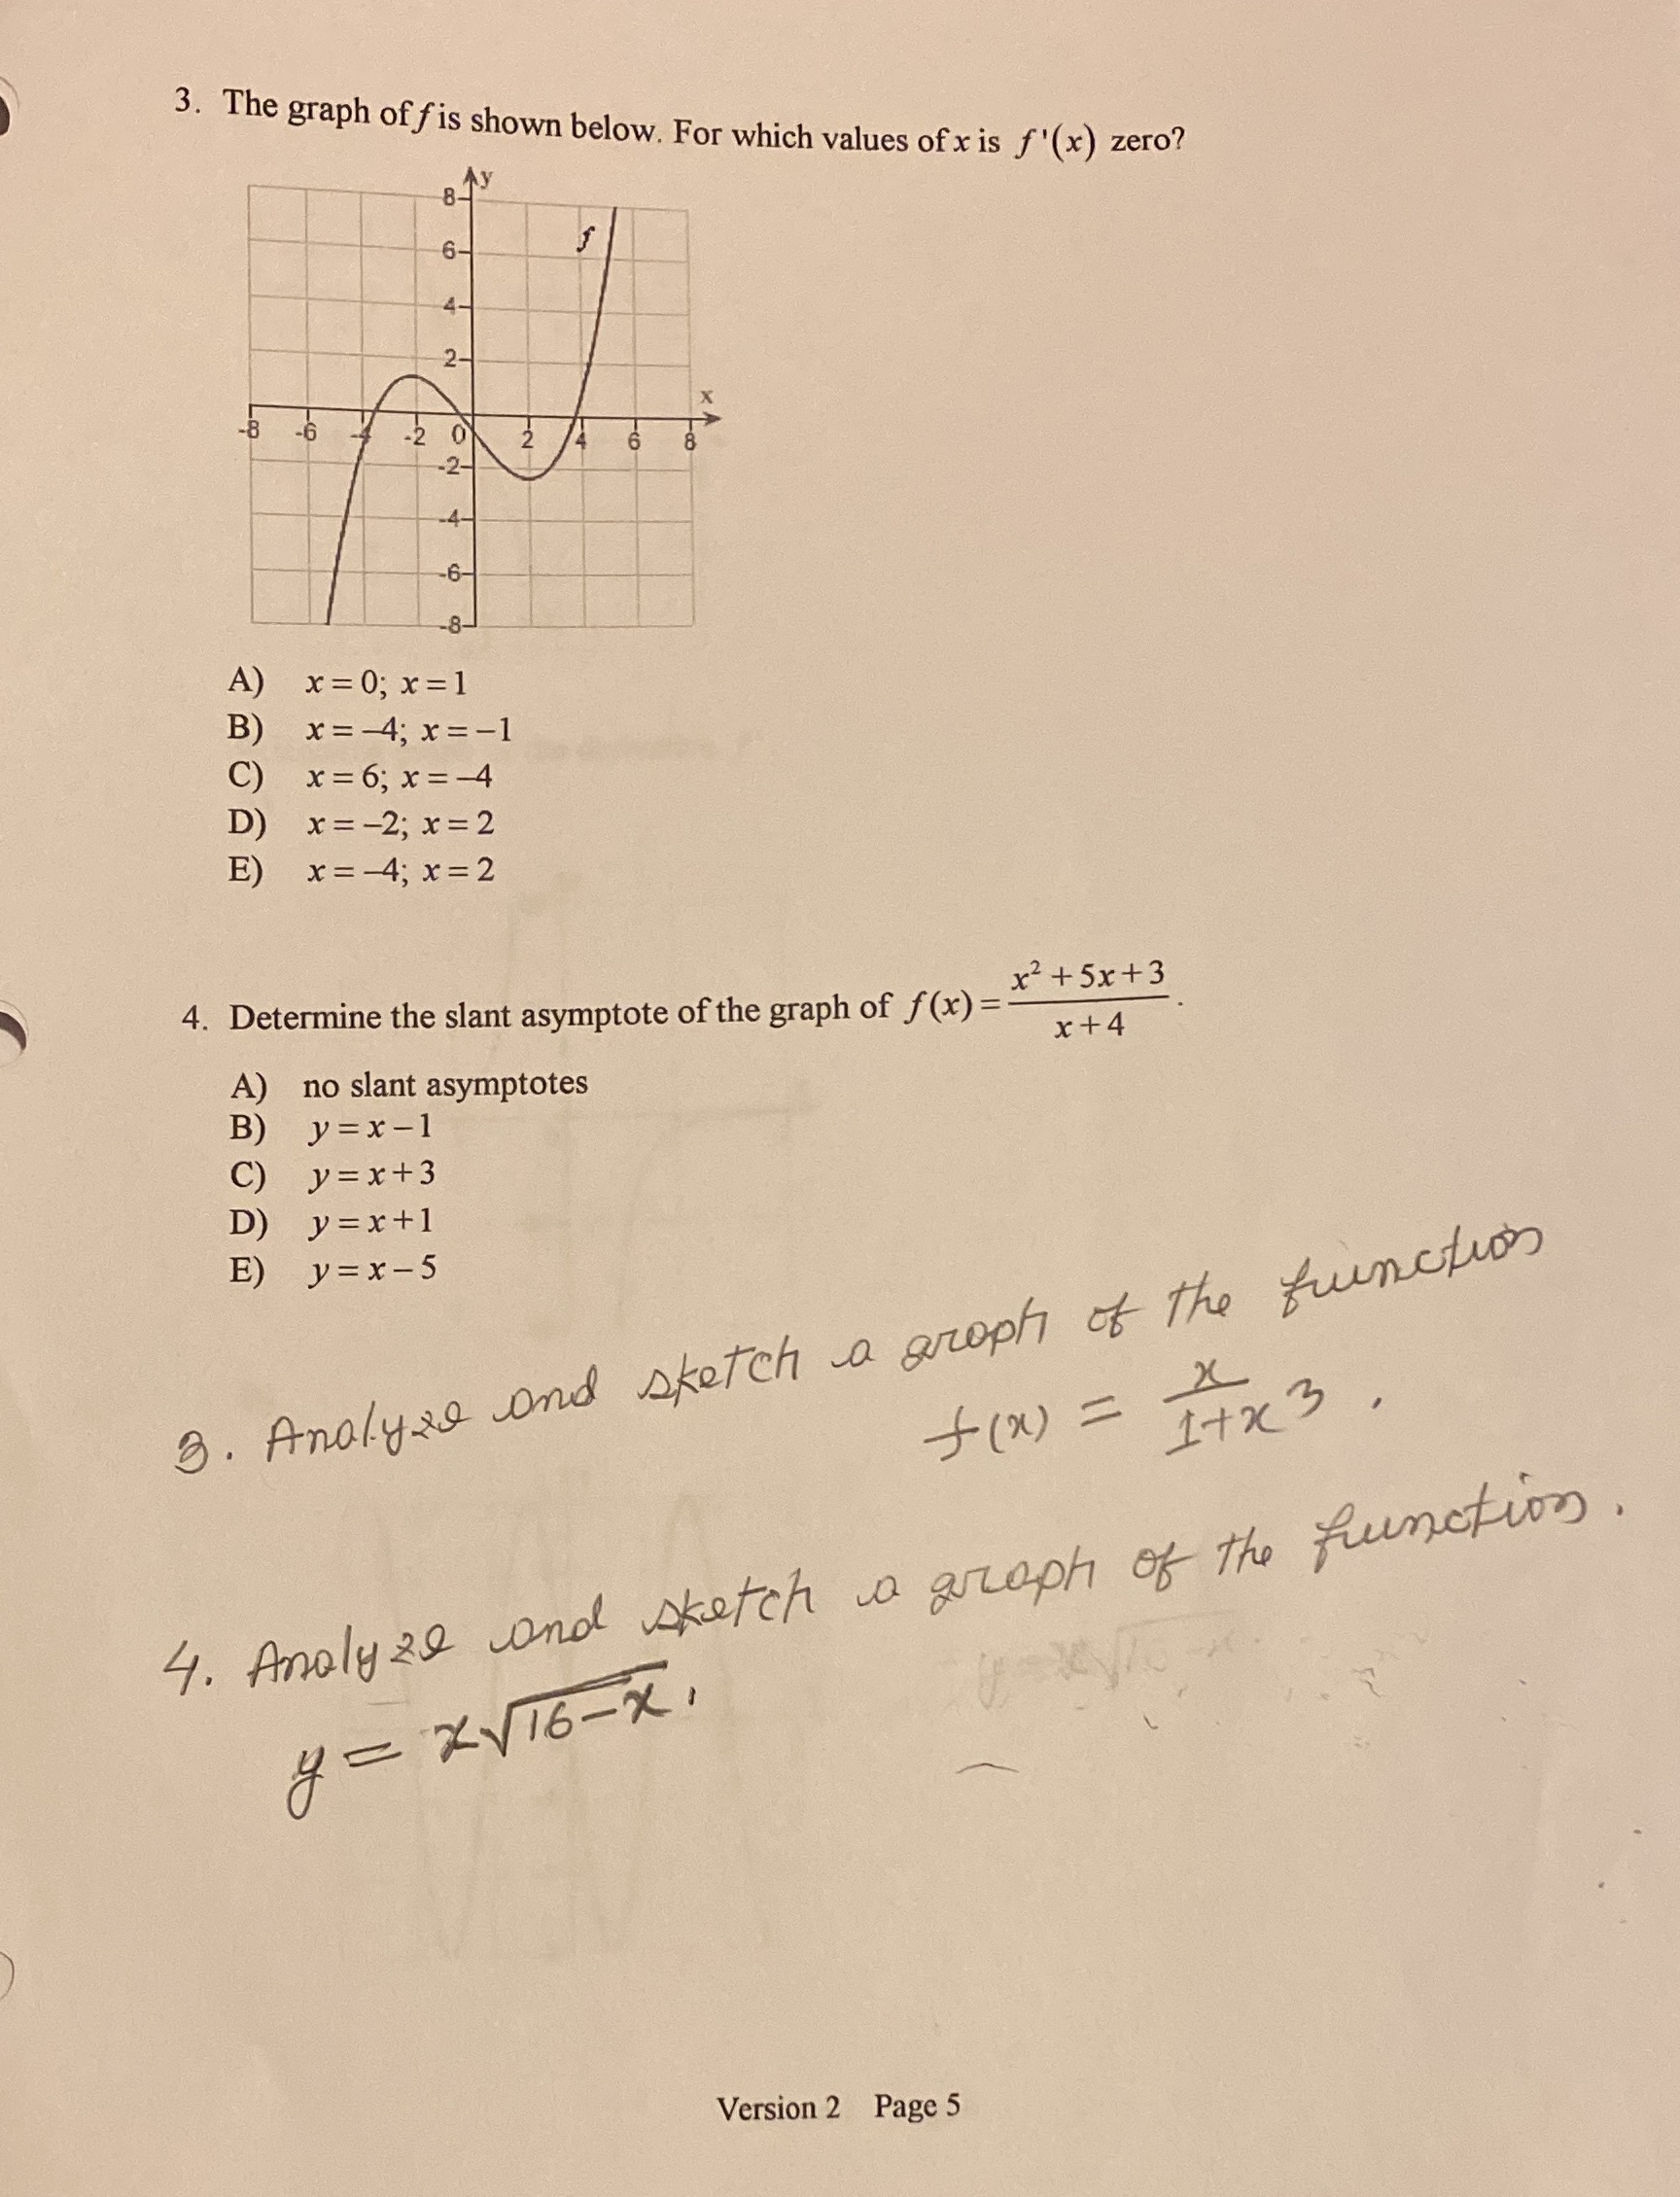 3. The graph of f is shown below. For which values of x is f '(x) zero?
y
8
6
f
4
2
x
-8 -6 -4 -2 0 2 4 6 8
-2
-4
-6
-8
A) x = 0; x = 1
B) x = –4; x = –1
C) x = 6; x = –4
D) x = –2; x = 2
E) x = –4; x = 2
4. Determine the slant asymptote of the graph of f(x) = (x² + 5x + 3)/(x + 4).
A) no slant asymptotes
B) y = x – 1
C) y = x + 3
D) y = x + 1
E) y = x – 5
3. Analyze and sketch a graph of the function
f(x) = x/(1+x3).
4. Analyze and sketch a graph of the function.
y = x√(16–x).
Version 2 Page 5